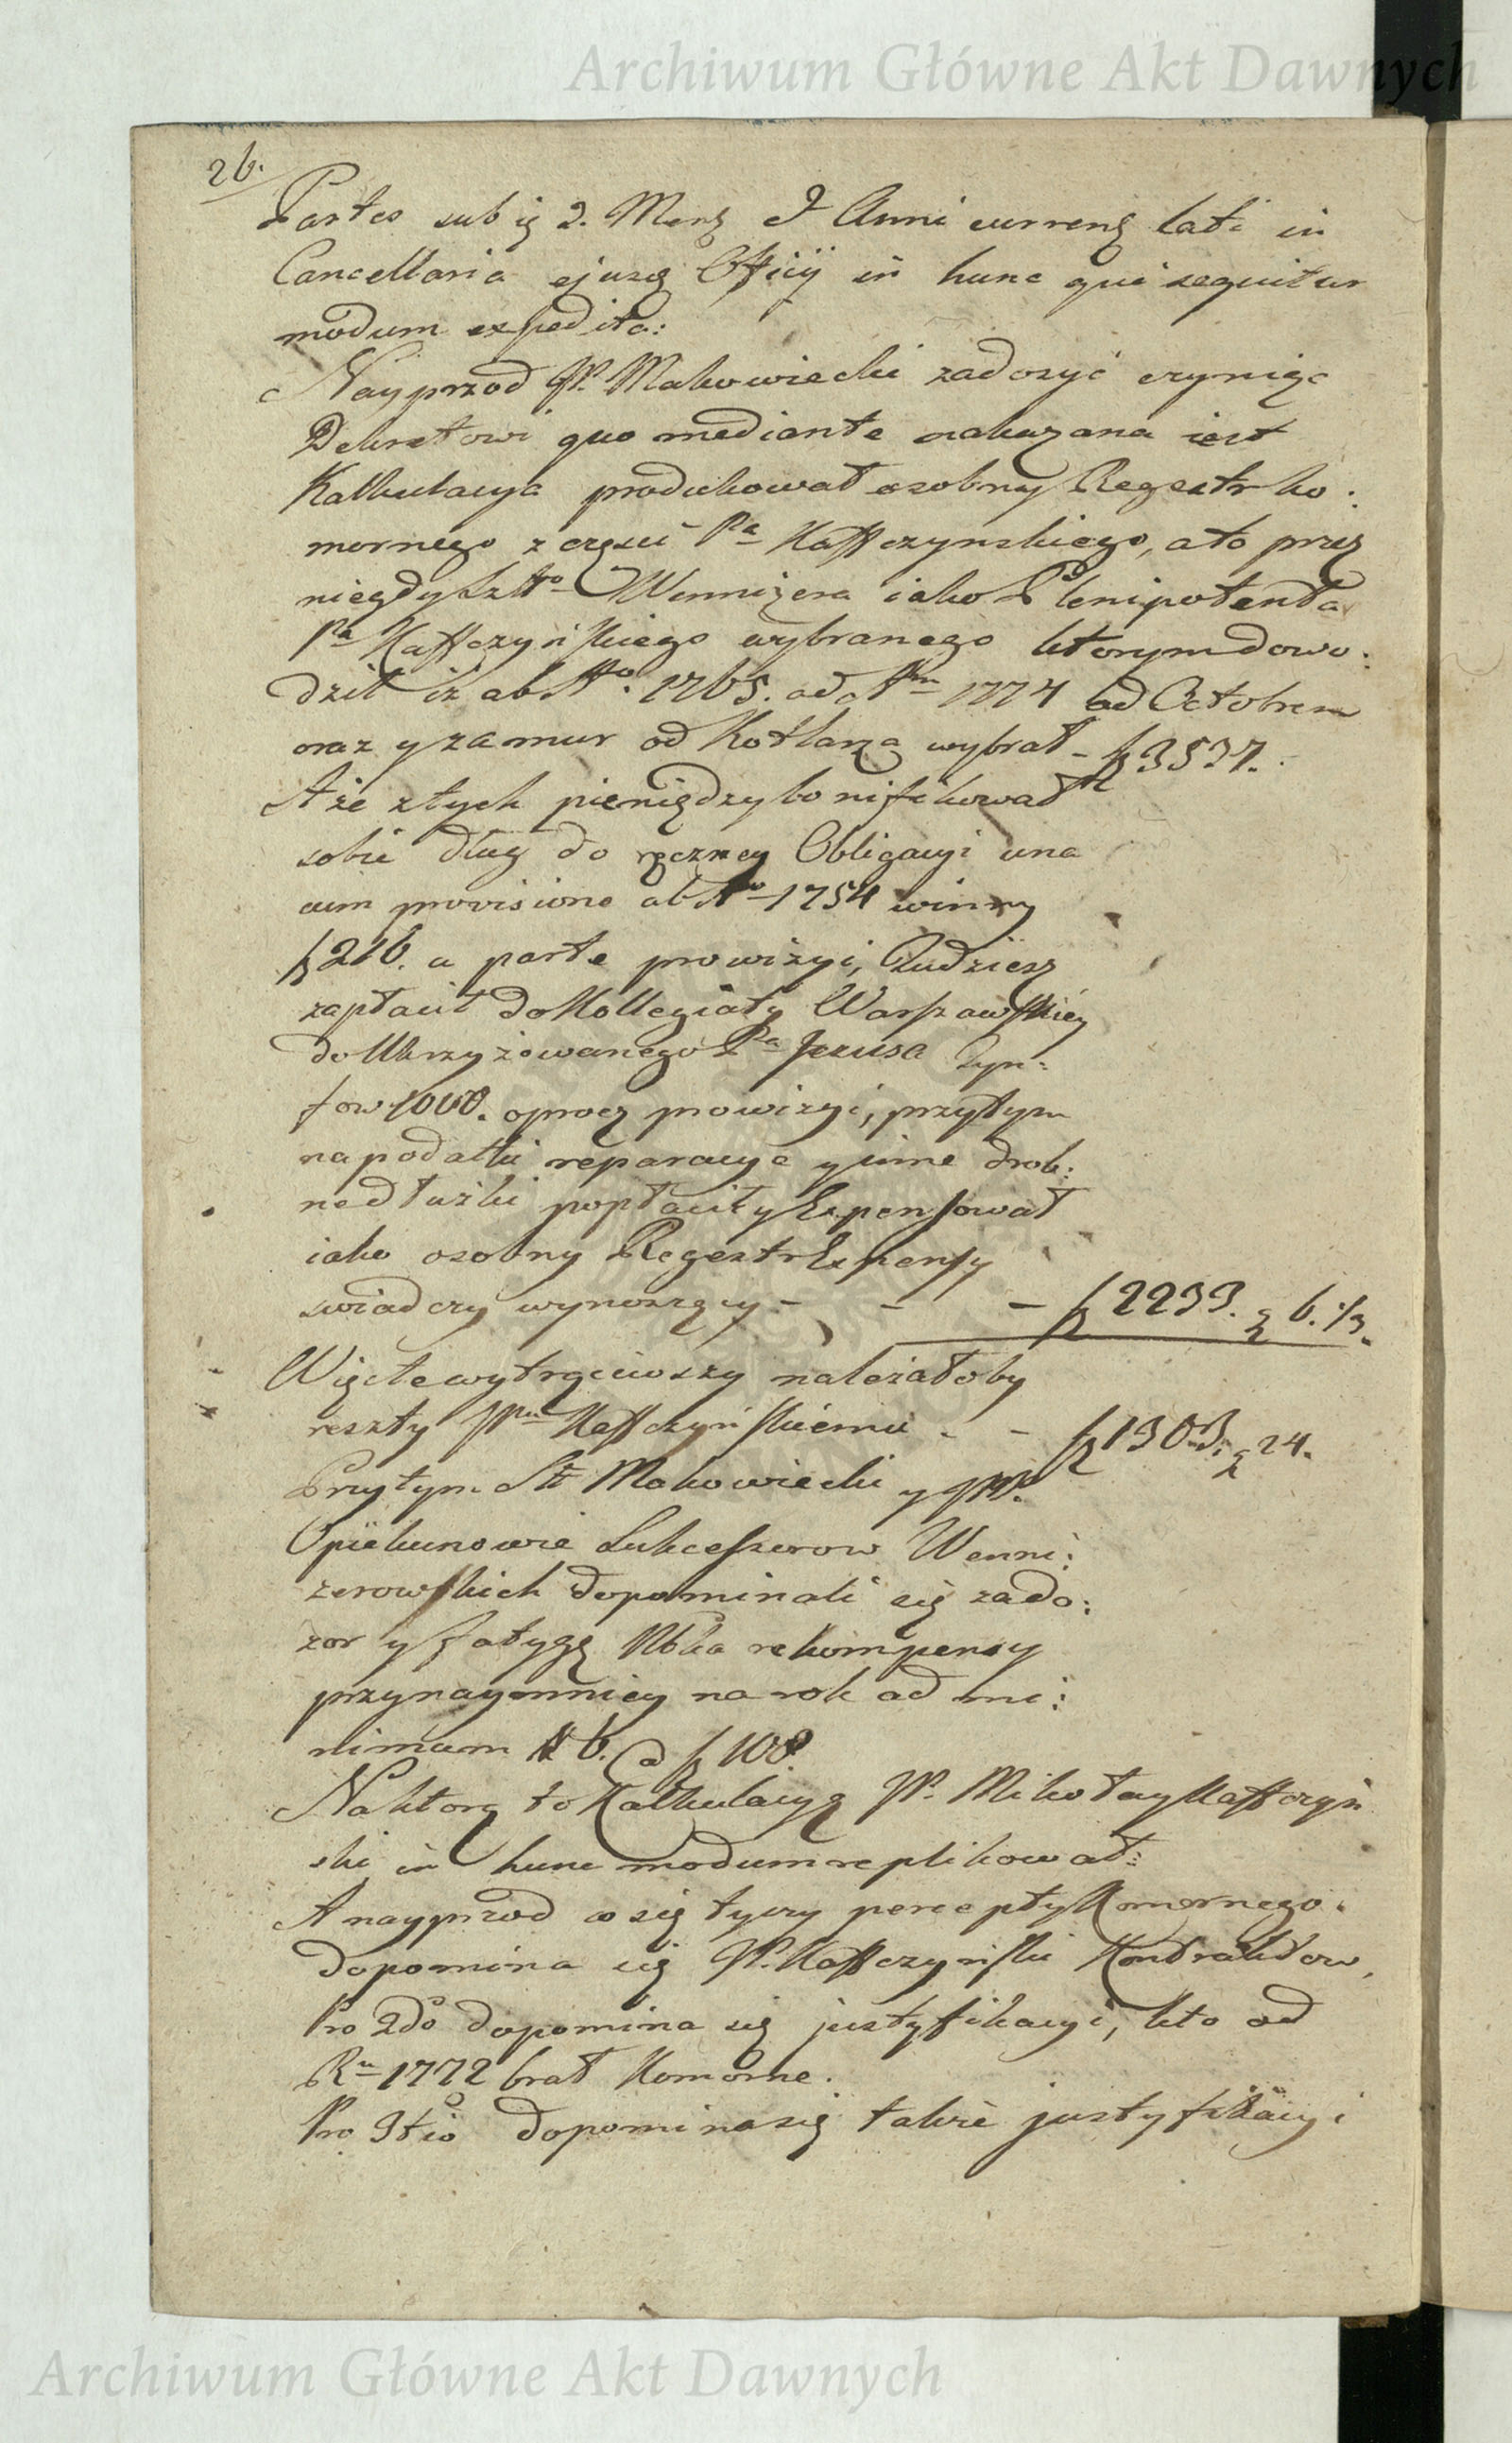 Archiwum Główne Akt Dawnych
26.
Partes sub 2. Mens. & Anni currens lati in
Cancellaria ejusd Officij in hunc qui sequitur
modum expedito:
Nayprzod JP. Makowiecki zadosyć czyniąc
Dekretowi quo mediante nakazana iest
Kalkulacya produkował osobny Regestr ko:
mornego z części Pa Kaffczynskiego, a to przez
niegdy Wennizera iako Plenipotenta
Pa Kaffczyńskiego wybranego ktorym dowo:
dził iż ab Ao. 1765. ad Am 1774 ad Octobrem
oraz y za mur od Kotlarza wybrał - f 3537.
A że z tych pieniędzy bonifikował
sobie dług do ręczney Obligacyi una
cum provisione ab Ao 1754 winny
f 216. a parte prowizyi, Tudziesz
zapłacił do Kollegiaty Warszawskiey
do Ukrzyżowanego Pa Jezusa Tyn:
fow 1000. oprocz prowizyi, przytym
na podatki reparacye y inne drob:
ne dłużki popłacił y Expensował
iako osobny Regestr Expensy
swiadczy wynoszący - - - f 2233. g 6. 1/3.
Więc te wytrąciwszy należałoby
reszty JPanu Kaffczyńskiemu - - f 1303. g 24.
Przytym Makowiecki y JPP.
Opiekunowie Sukcessorow Wenni:
zerowskich dopominali się za do:
zor y fatygę rekompensy
przynaymniey na rok ad mi:
nimum # 6. a f 108.
Na ktorą to Kalkulacyą JP. Mikołay Kaffczyń
ski in hunc modum replikował:
A nayprzod co się tyczy percepty Komornego.
dopomina się JP. Kaffczyński Kontraktow,
Pro 2do dopomina się justyfikacyi, kto od
Ru 1772 brał Komorne.
Pro 3tio dopomina się także justyfikacyi
Archiwum Główne Akt Dawnych